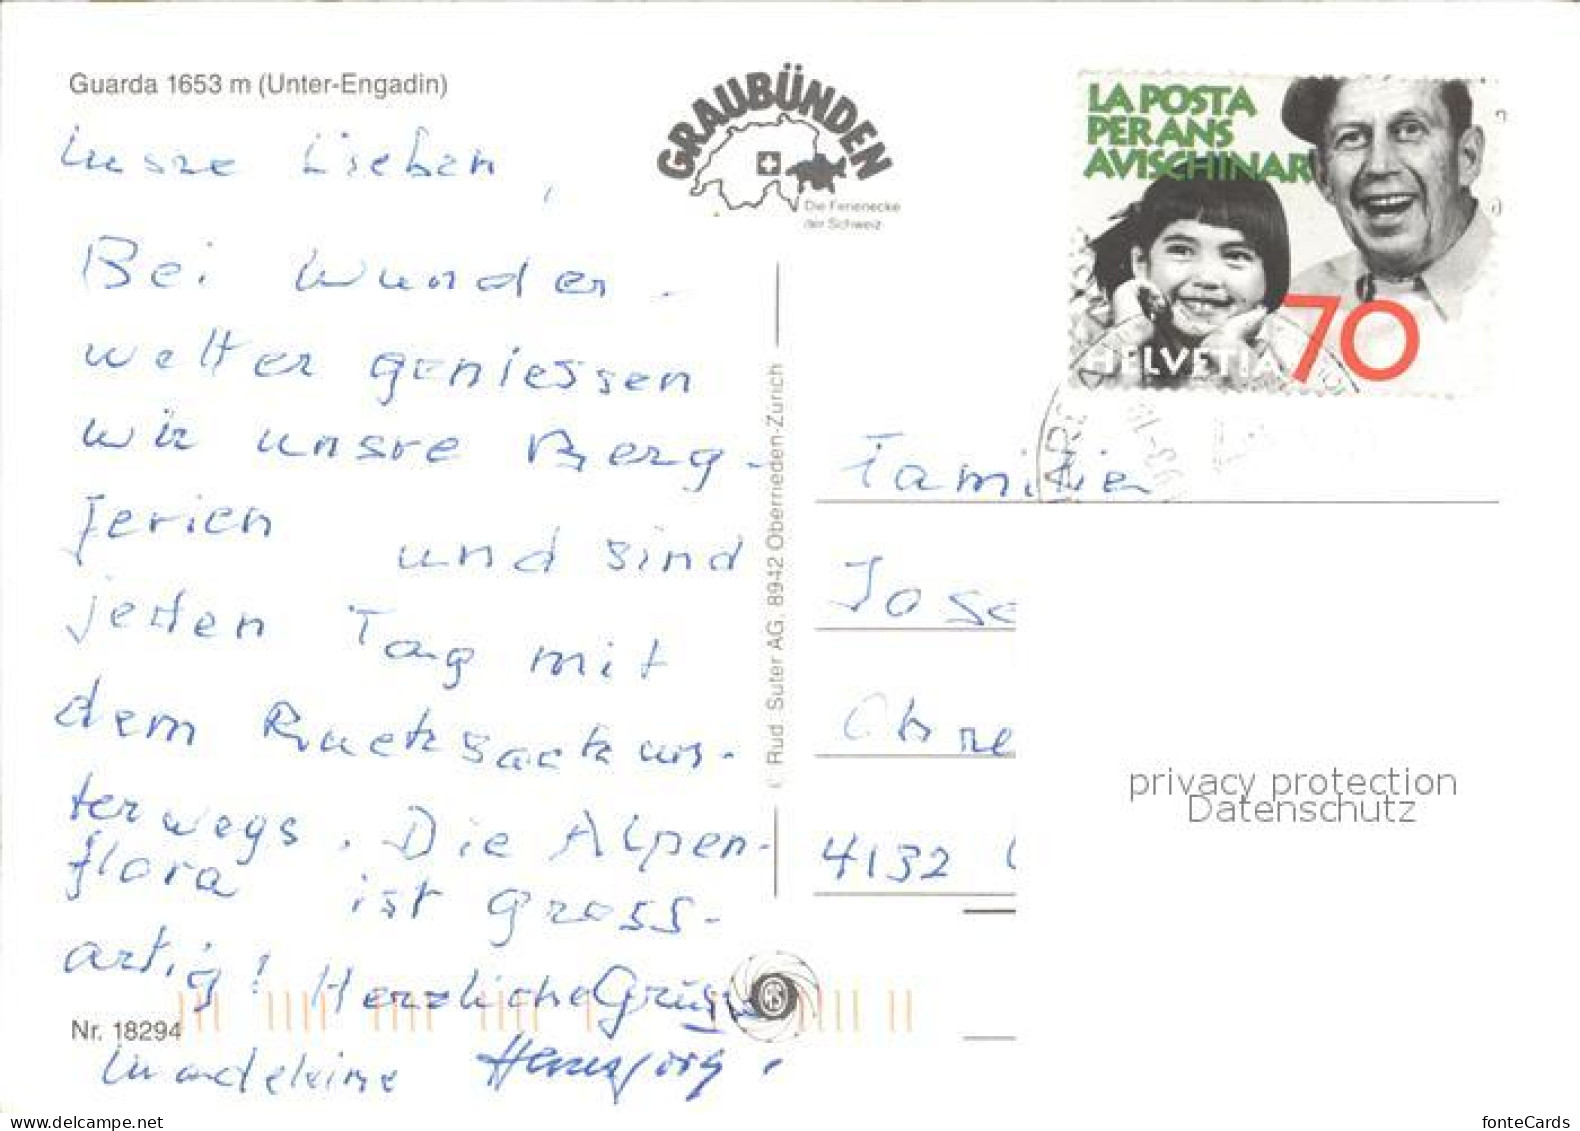 Guarda 1653 m (Unter-Engadin)
GRAUBÜNDEN
Die Ferienecke
der Schweiz
LA POSTA
PER ANS
AVISCHINAR
HELVETIA 70
unsre Lieben,
Bei Wunder-
wetter geniessen
wir unsre Berg-
ferien und sind
jeden Tag mit
dem Rucksack un-
terwegs. Die Alpen-
flora ist gross-
artig! Herzliche Grüsse
Madeleine Hansjörg.
Nr. 18294
© Rud. Suter AG, 8942 Oberrieden-Zürich
Familie
Jose
4132
privacy protection
Datenschutz
fonteCards